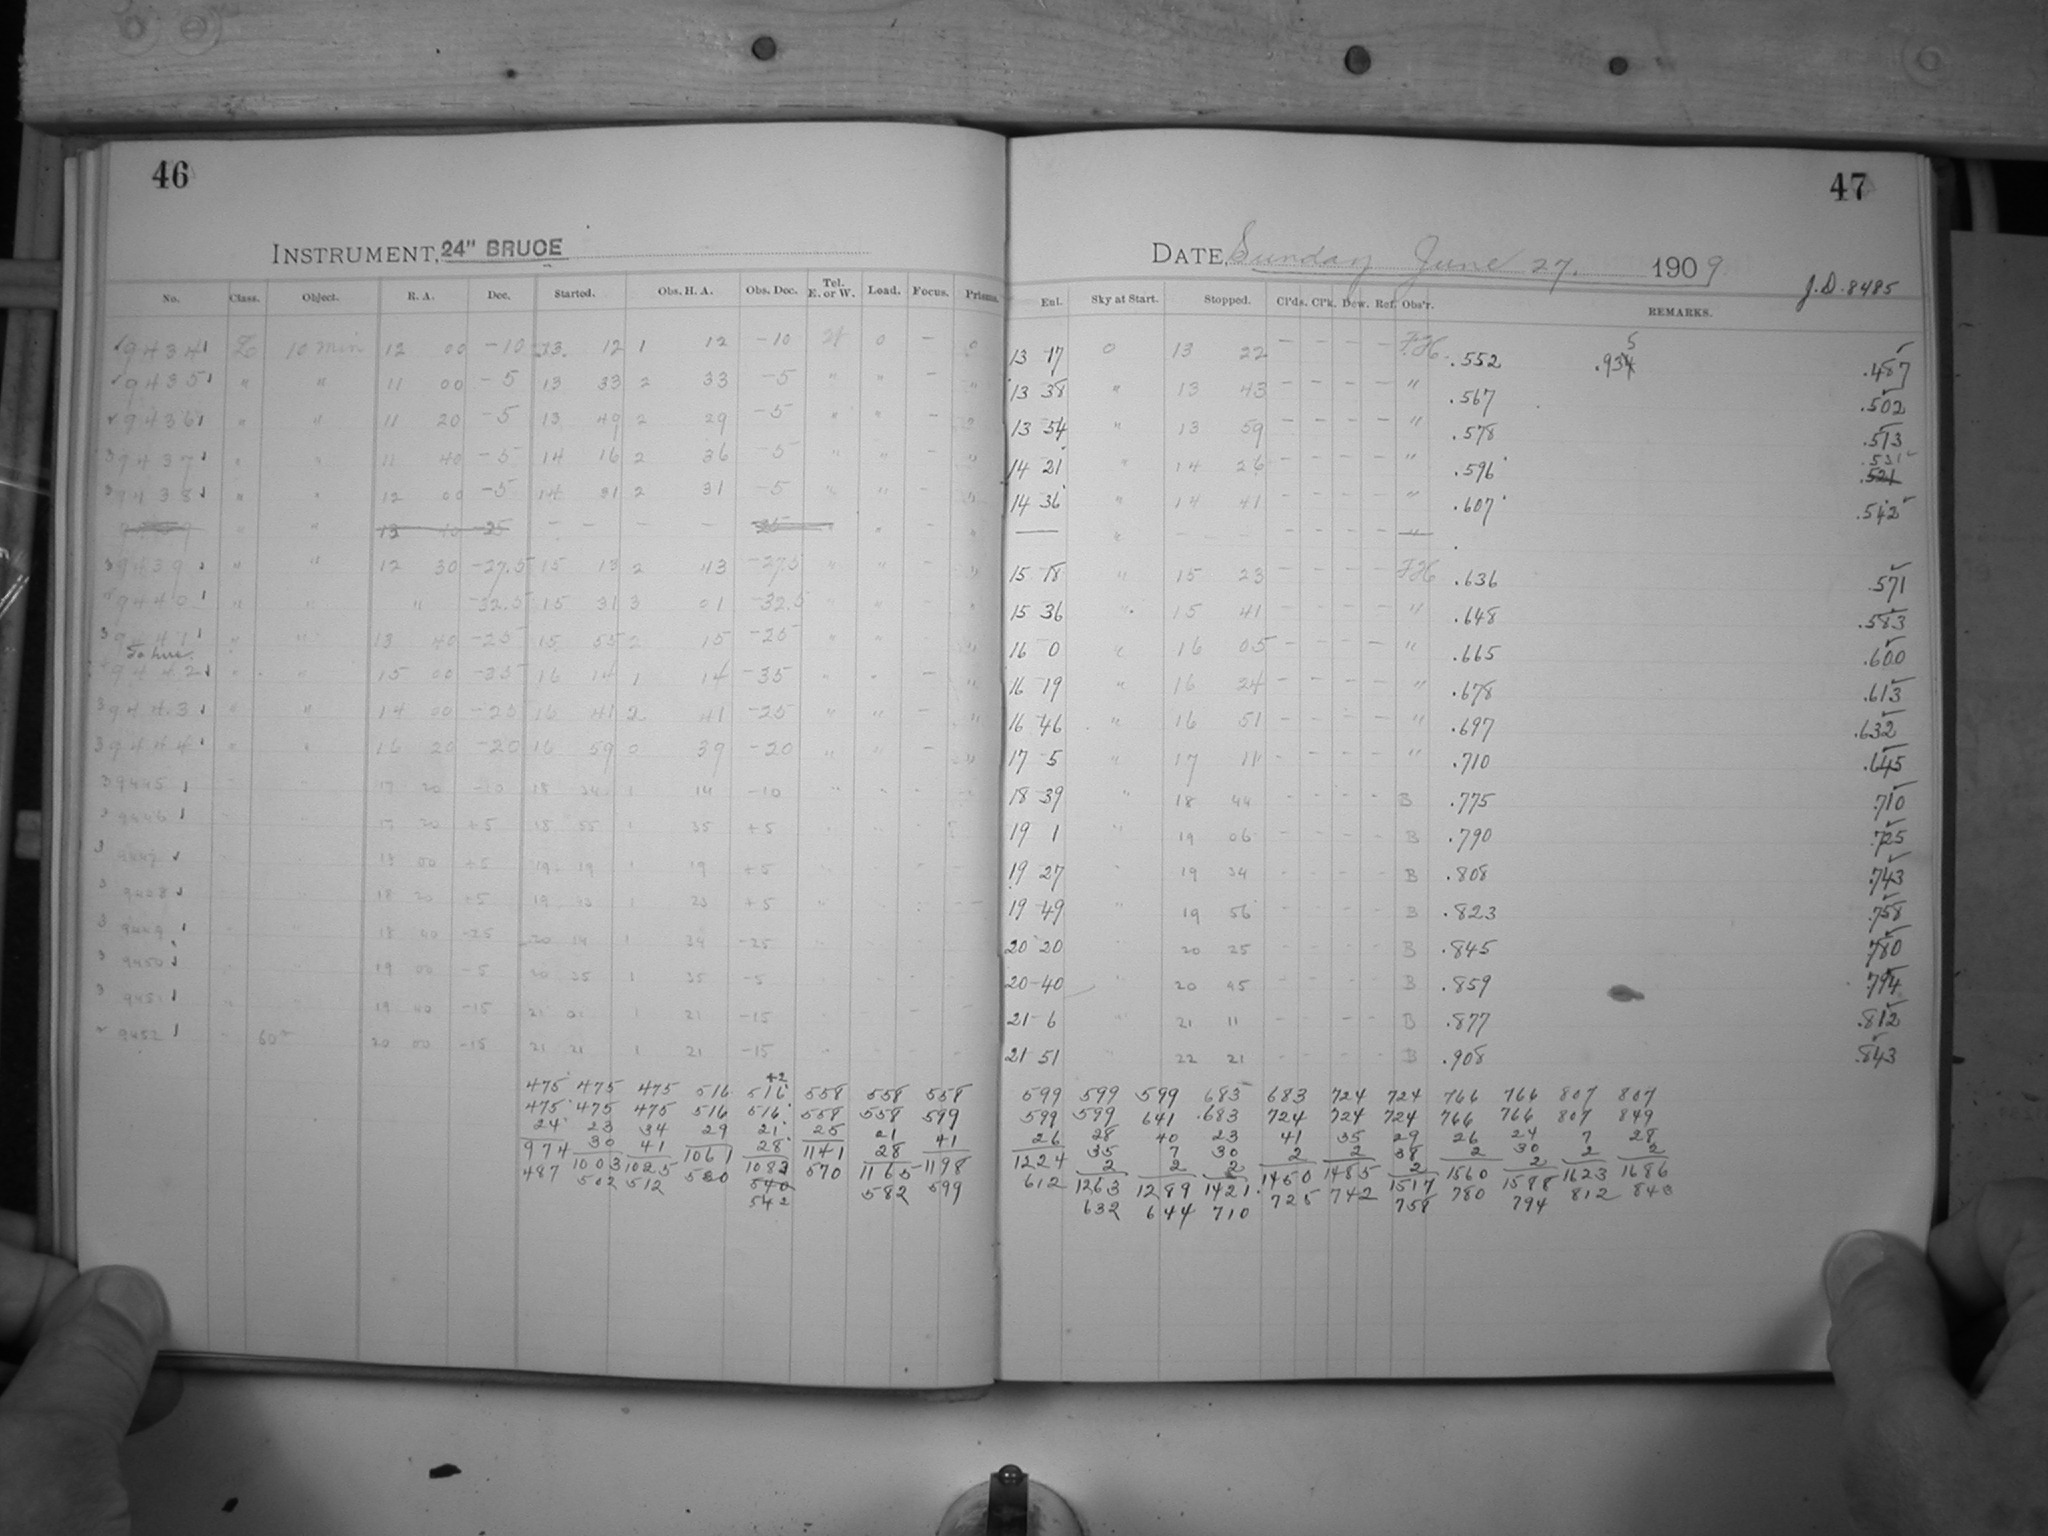 46
INSTRUMENT, 24" BRUCE
No. Class. Object. R. A. Dec. Started. Obs. H. A. Obs. Dec. Tel. E. or W. Load. Focus. Prisms.
9434 10 min 12 00 -10 13 12 1 12 -10 W 0 - 0
9435 " " 11 00 -5 13 33 2 33 -5 " " - "
9436 " " 11 20 -5 13 49 2 29 -5 " " - "
9437 " " 11 40 -5 14 16 2 36 -5 " " - "
9438 " " 12 00 -5 14 31 2 31 -5 " " - "
" " 13 40 -25 - - - - " " "
9439 " " 12 30 -27.5 15 13 2 43 -27.5 " " - "
9440 " " " -32.5 15 31 3 01 -32.5 " " "
9441 " " 13 40 -25 15 55 2 15 -25 " " "
9442 " " 15 00 -35 16 14 1 14 -35 " " - "
9443 " " 14 00 -25 16 41 2 41 -25 " " - "
9444 " " 16 20 -20 16 59 0 39 -20 " " - "
9445 17 20 -10 18 34 1 14 -10
9446 17 20 +5 18 55 1 35 +5
+5 19 19 1 19 +5
18 20 +5 19 1 +5
9449 18 40 -25 20 14 1 34 -25
9450 19 00 -5 20 35 1 35 -5
9451 19 40 -15 21 01 1 21 -15
9452 60 20 00 -15 21 21 1 21 -15
42
475 475 475 516 516 558 558 558
475 475 475 516 516 558 558 599
24 23 34 29 21 25 21 41
974 30 41 1061 28 1141 28 1198
487 1003 1025 530 1082 570 1165 599
502 512 540 582
542
47
DATE, Sunday June 27. 1909
J.D. 8485
Enl. Sky at Start. Stopped. Cl'ds. Cl'k. Dew. Ref. Obs'r. REMARKS.
5
13 17 0 13 22 - - - - F.H. .552 .934 .487
13 38 " 13 43 - - - - " .567 .502
13 54 " 13 59 - - - - " .578 .513
14 21 " 14 26 - - - - " .596 .531
.521
14 36 " 14 41 - - - - " .607 .542
— " - - - - "
15 18 " 15 23 - - - - F.H. .636 .571
15 36 " 15 41 - - - - " .648 .583
16 0 " 16 05 - - - - " .665 .600
16 19 " 16 24 - - - - " .678 .613
16 46 " 16 51 - - - - " .697 .632
17 5 " 17 11 - - - - " .710 .645
18 39 " 18 44 - - - - B .775 .710
19 1 " 19 06 - - - - B .790 .725
19 27 " 19 34 - - - - B .808 .743
19 49 " 19 56 - - - - B .823 .758
20 20 " 20 25 - - - - B .845 .780
20-40 " 20 45 - - - - B .859 .794
21-6 " 21 11 - - - - B .877 .812
21 51 " 22 21 - - - - B .908 .843
599 599 599 683 683 724 724 766 766 807 807
599 599 641 683 724 724 724 766 766 807 849
26 28 40 23 41 35 29 26 24 7 28
1224 35 7 30 2 2 38 2 30 2 2
612 2 2 2 1450 1485 2 1560 2 1623 1686
1263 1289 1421 725 742 1517 780 1588 812 843
632 644 710 758 794